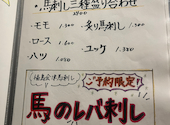 ・馬刺し三種盛り合わせ
・モモ 1.300
・炙り馬刺し 1.500
・ロース 1.600
・ユッケ 1.380
・ハツ
ご予約限定!
馬のレバ刺し